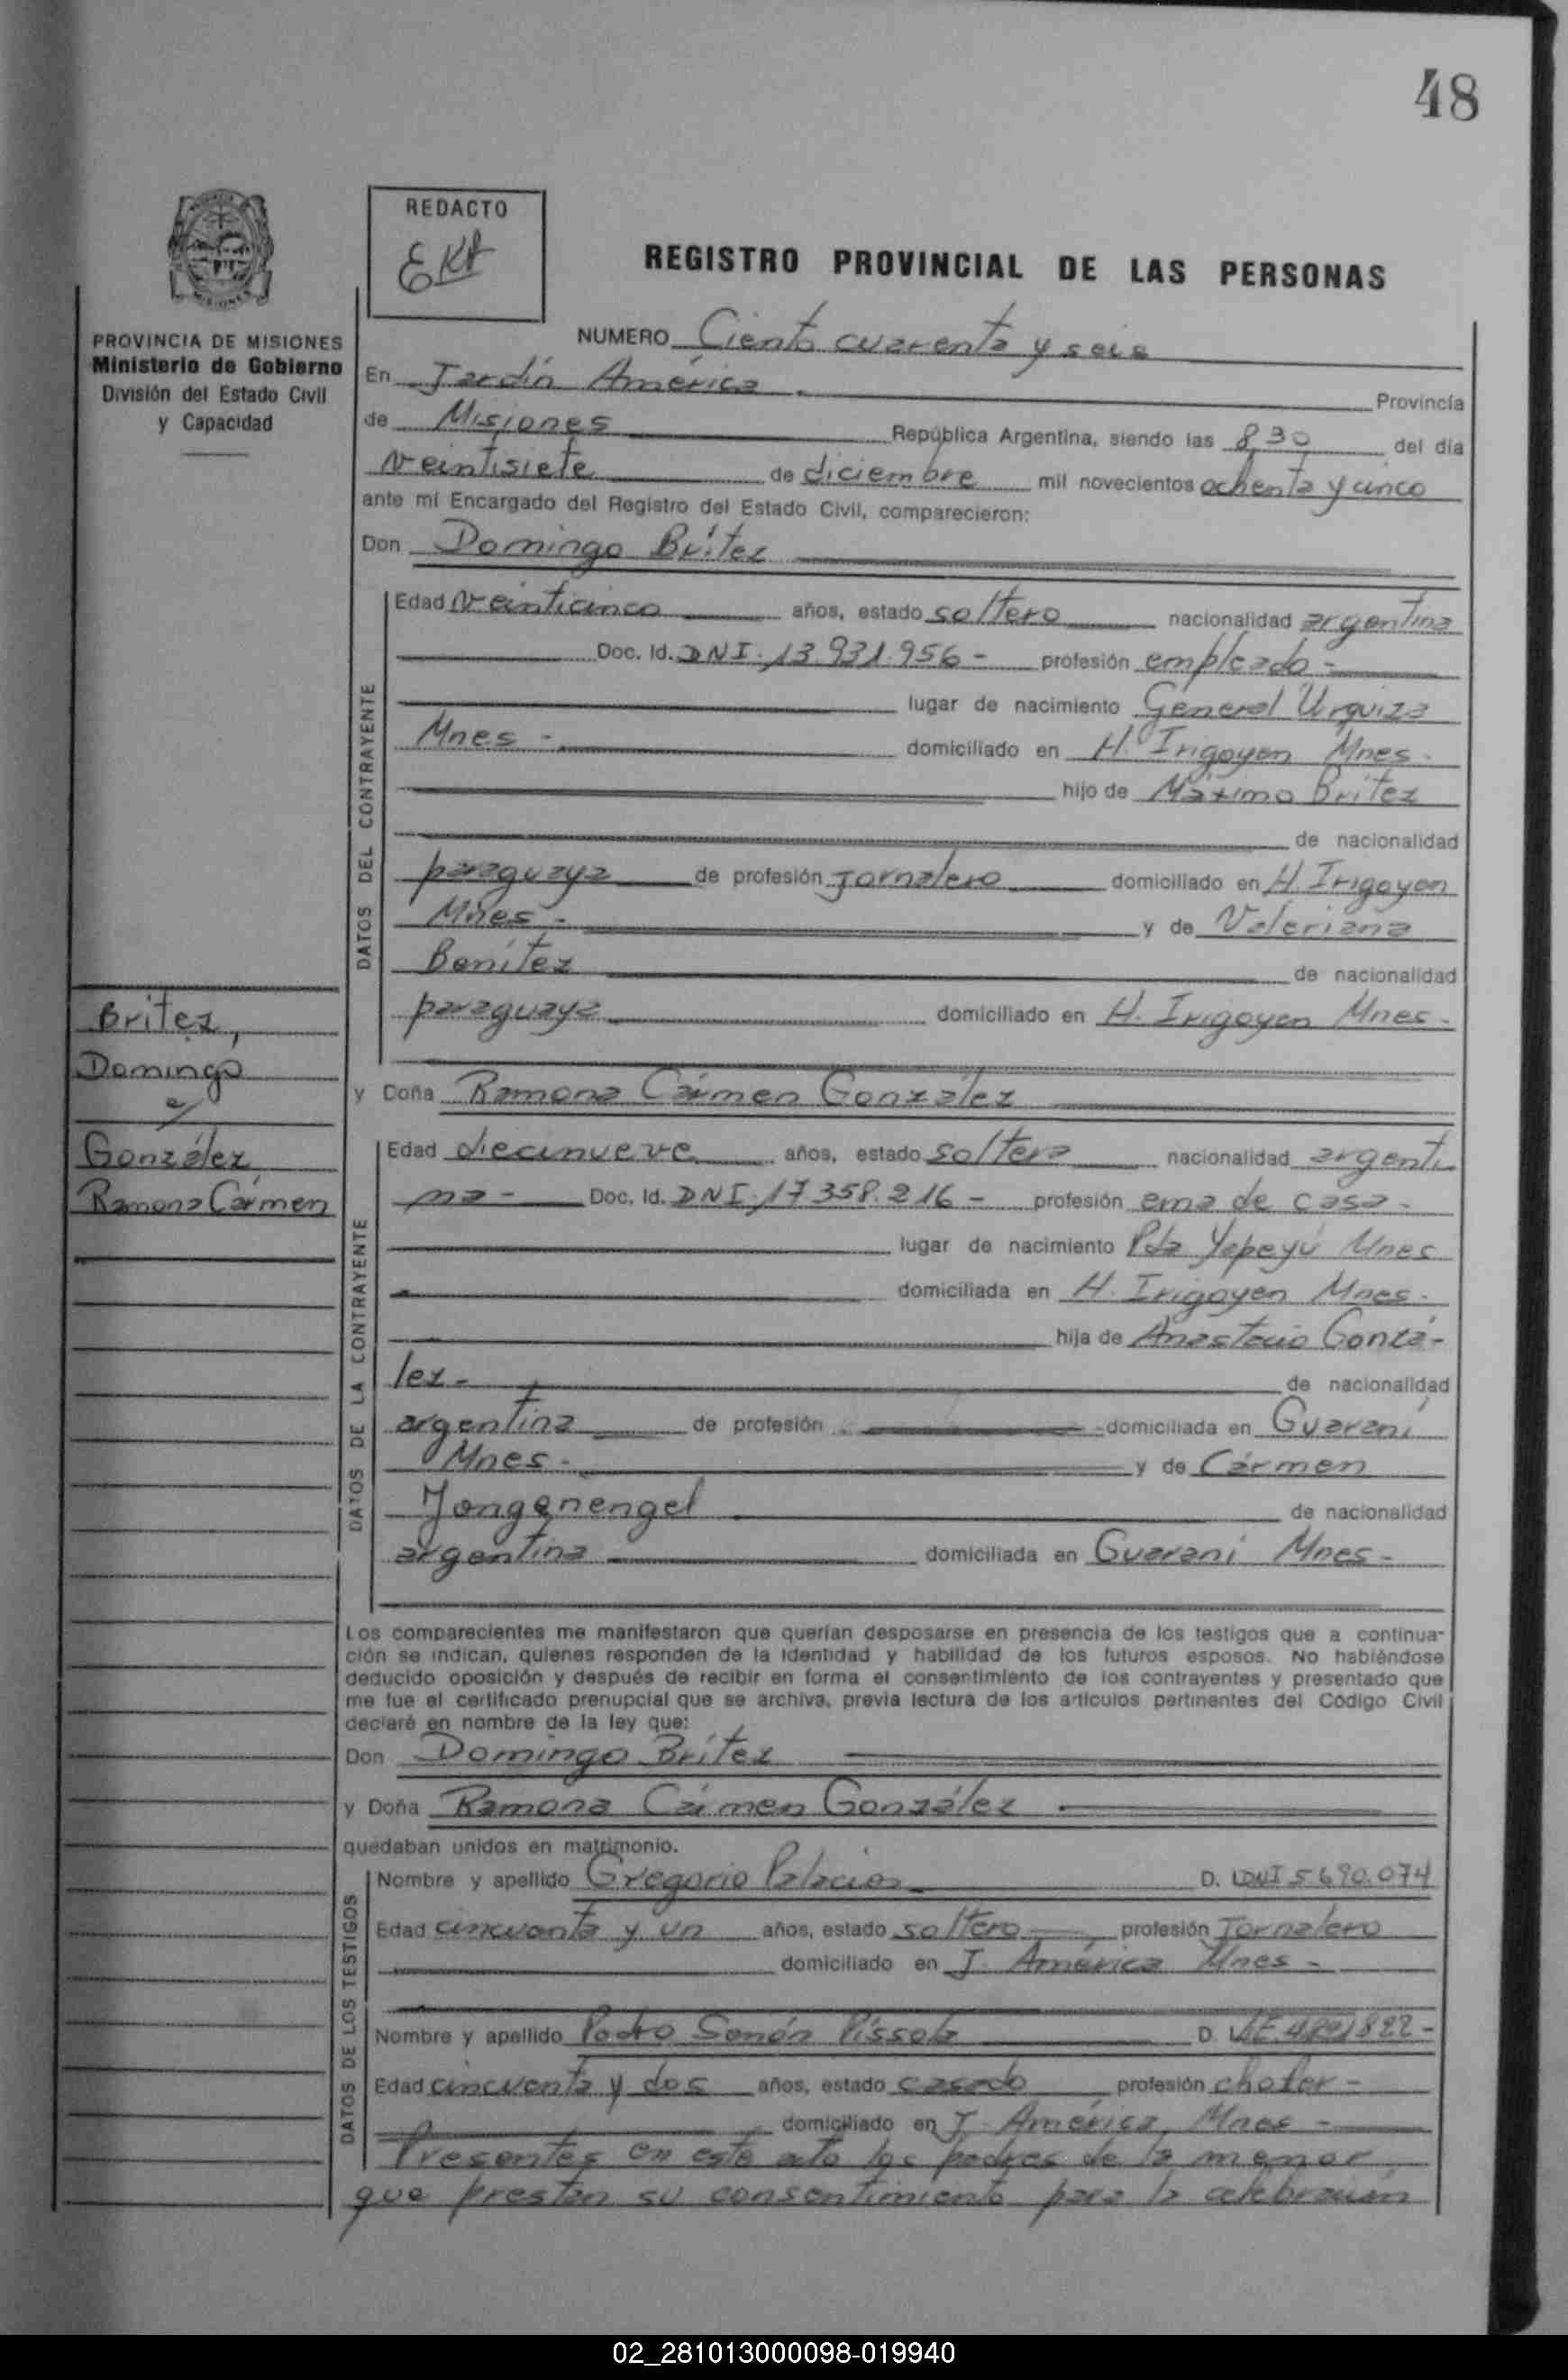 48
REDACTO
EKA
REGISTRO PROVINCIAL DE LAS PERSONAS
PROVINCIA DE MISIONES
Ministerio de Gobierno
División del Estado Civil
y Capacidad
NUMERO Ciento cuarenta y seis
En Jardín América Provincia
de Misiones República Argentina, siendo las 8,30 del día
veintisiete de diciembre mil novecientos ochenta y cinco
ante mí Encargado del Registro del Estado Civil, comparecieron:
Don Domingo Brítez
DATOS DEL CONTRAYENTE
Edad veinticinco años, estado soltero nacionalidad argentina
Doc. Id. DNI. 13.931.956 - profesión empleado -
lugar de nacimiento General Urquiza
Mnes - domiciliado en H. Irigoyen Mnes.
hijo de Máximo Brítez
de nacionalidad
paraguaya de profesión jornalero domiciliado en H. Irigoyen
Mnes - y de Valeriana
Benítez de nacionalidad
paraguaya domiciliado en H. Irigoyen Mnes -
Brítez,
Domingo
c/
González
Ramona Cármen
y Doña Ramona Cármen González
DATOS DE LA CONTRAYENTE
Edad diecinueve años, estado soltera nacionalidad argenti
na - Doc. Id. DNI. 17.358.216 - profesión ama de casa -
lugar de nacimiento Pto Yapeyú Mnes
domiciliada en H. Irigoyen Mnes.
hija de Anastacio Gonzá-
lez - de nacionalidad
argentina de profesión domiciliada en Guaraní
Mnes - y de Cármen
Jongenengel de nacionalidad
argentina domiciliada en Guaraní Mnes -
Los comparecientes me manifestaron que querían desposarse en presencia de los testigos que a continua-
ción se indican, quienes responden de la identidad y habilidad de los futuros esposos. No habiéndose
deducido oposición y después de recibir en forma el consentimiento de los contrayentes y presentado que
me fue el certificado prenupcial que se archiva, previa lectura de los artículos pertinentes del Código Civil
declaré en nombre de la ley que:
Don Domingo Brítez
y Doña Ramona Cármen González
quedaban unidos en matrimonio.
DATOS DE LOS TESTIGOS
Nombre y apellido Gregorio Palacios D. DNI 5.690.074
Edad cincuenta y un años, estado soltero profesión Jornalero
domiciliado en J. América Mnes -
Nombre y apellido Pedro Senón D. LE
Edad cincuenta y dos años, estado casado profesión chofer -
domiciliado en J. América Mnes -
Presentes en este acto los padres de la menor
que prestan su consentimiento para la celebración
02_281013000098-019940